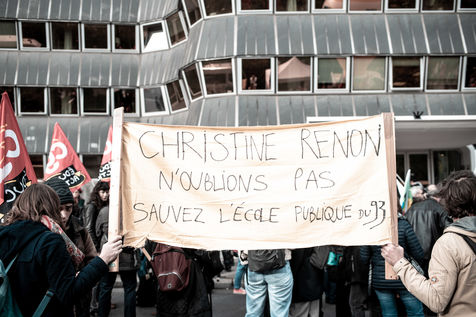 CHRISTINE RENON
N'OUBLIONS PAS
SAUVEZ L'ÉCOLE PUBLIQUE DU 93